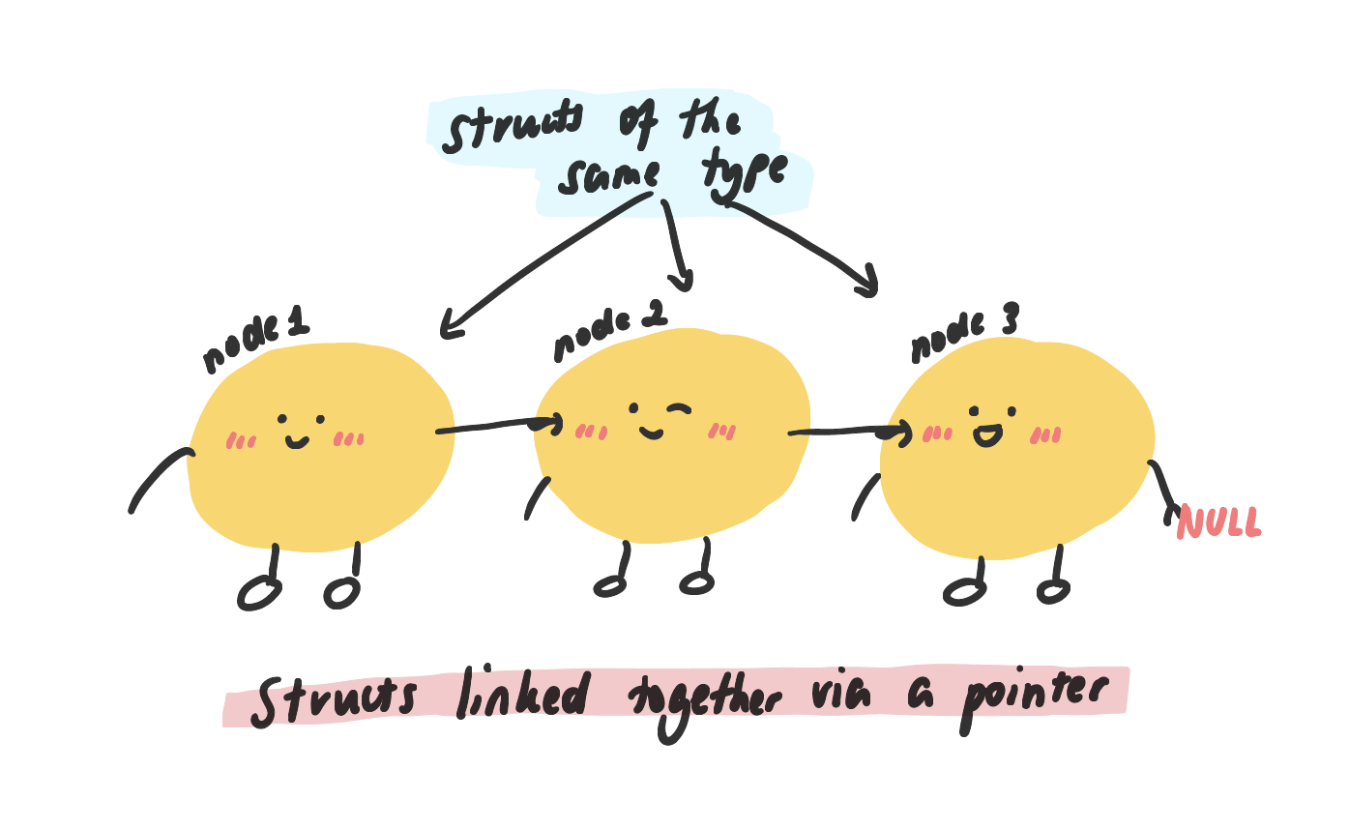 structs of the
same type
node 1
node 2
node 3
NULL
Structs linked together via a pointer